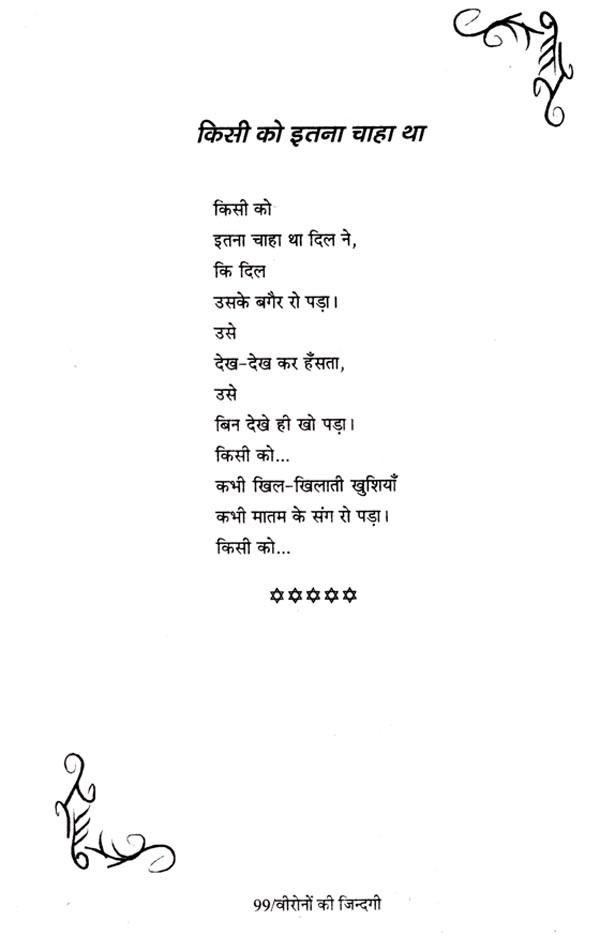 किसी को इतना चाहा था
किसी को
इतना चाहा था दिल ने,
कि दिल
उसके बगैर रो पड़ा।
उसे
देख-देख कर हँसता,
उसे
बिन देखे ही खो पड़ा।
किसी को...
कभी खिल-खिलाती खुशियाँ
कभी मातम के संग रो पड़ा।
किसी को...
✡✡✡✡✡
99/वीरोनों की जिन्दगी